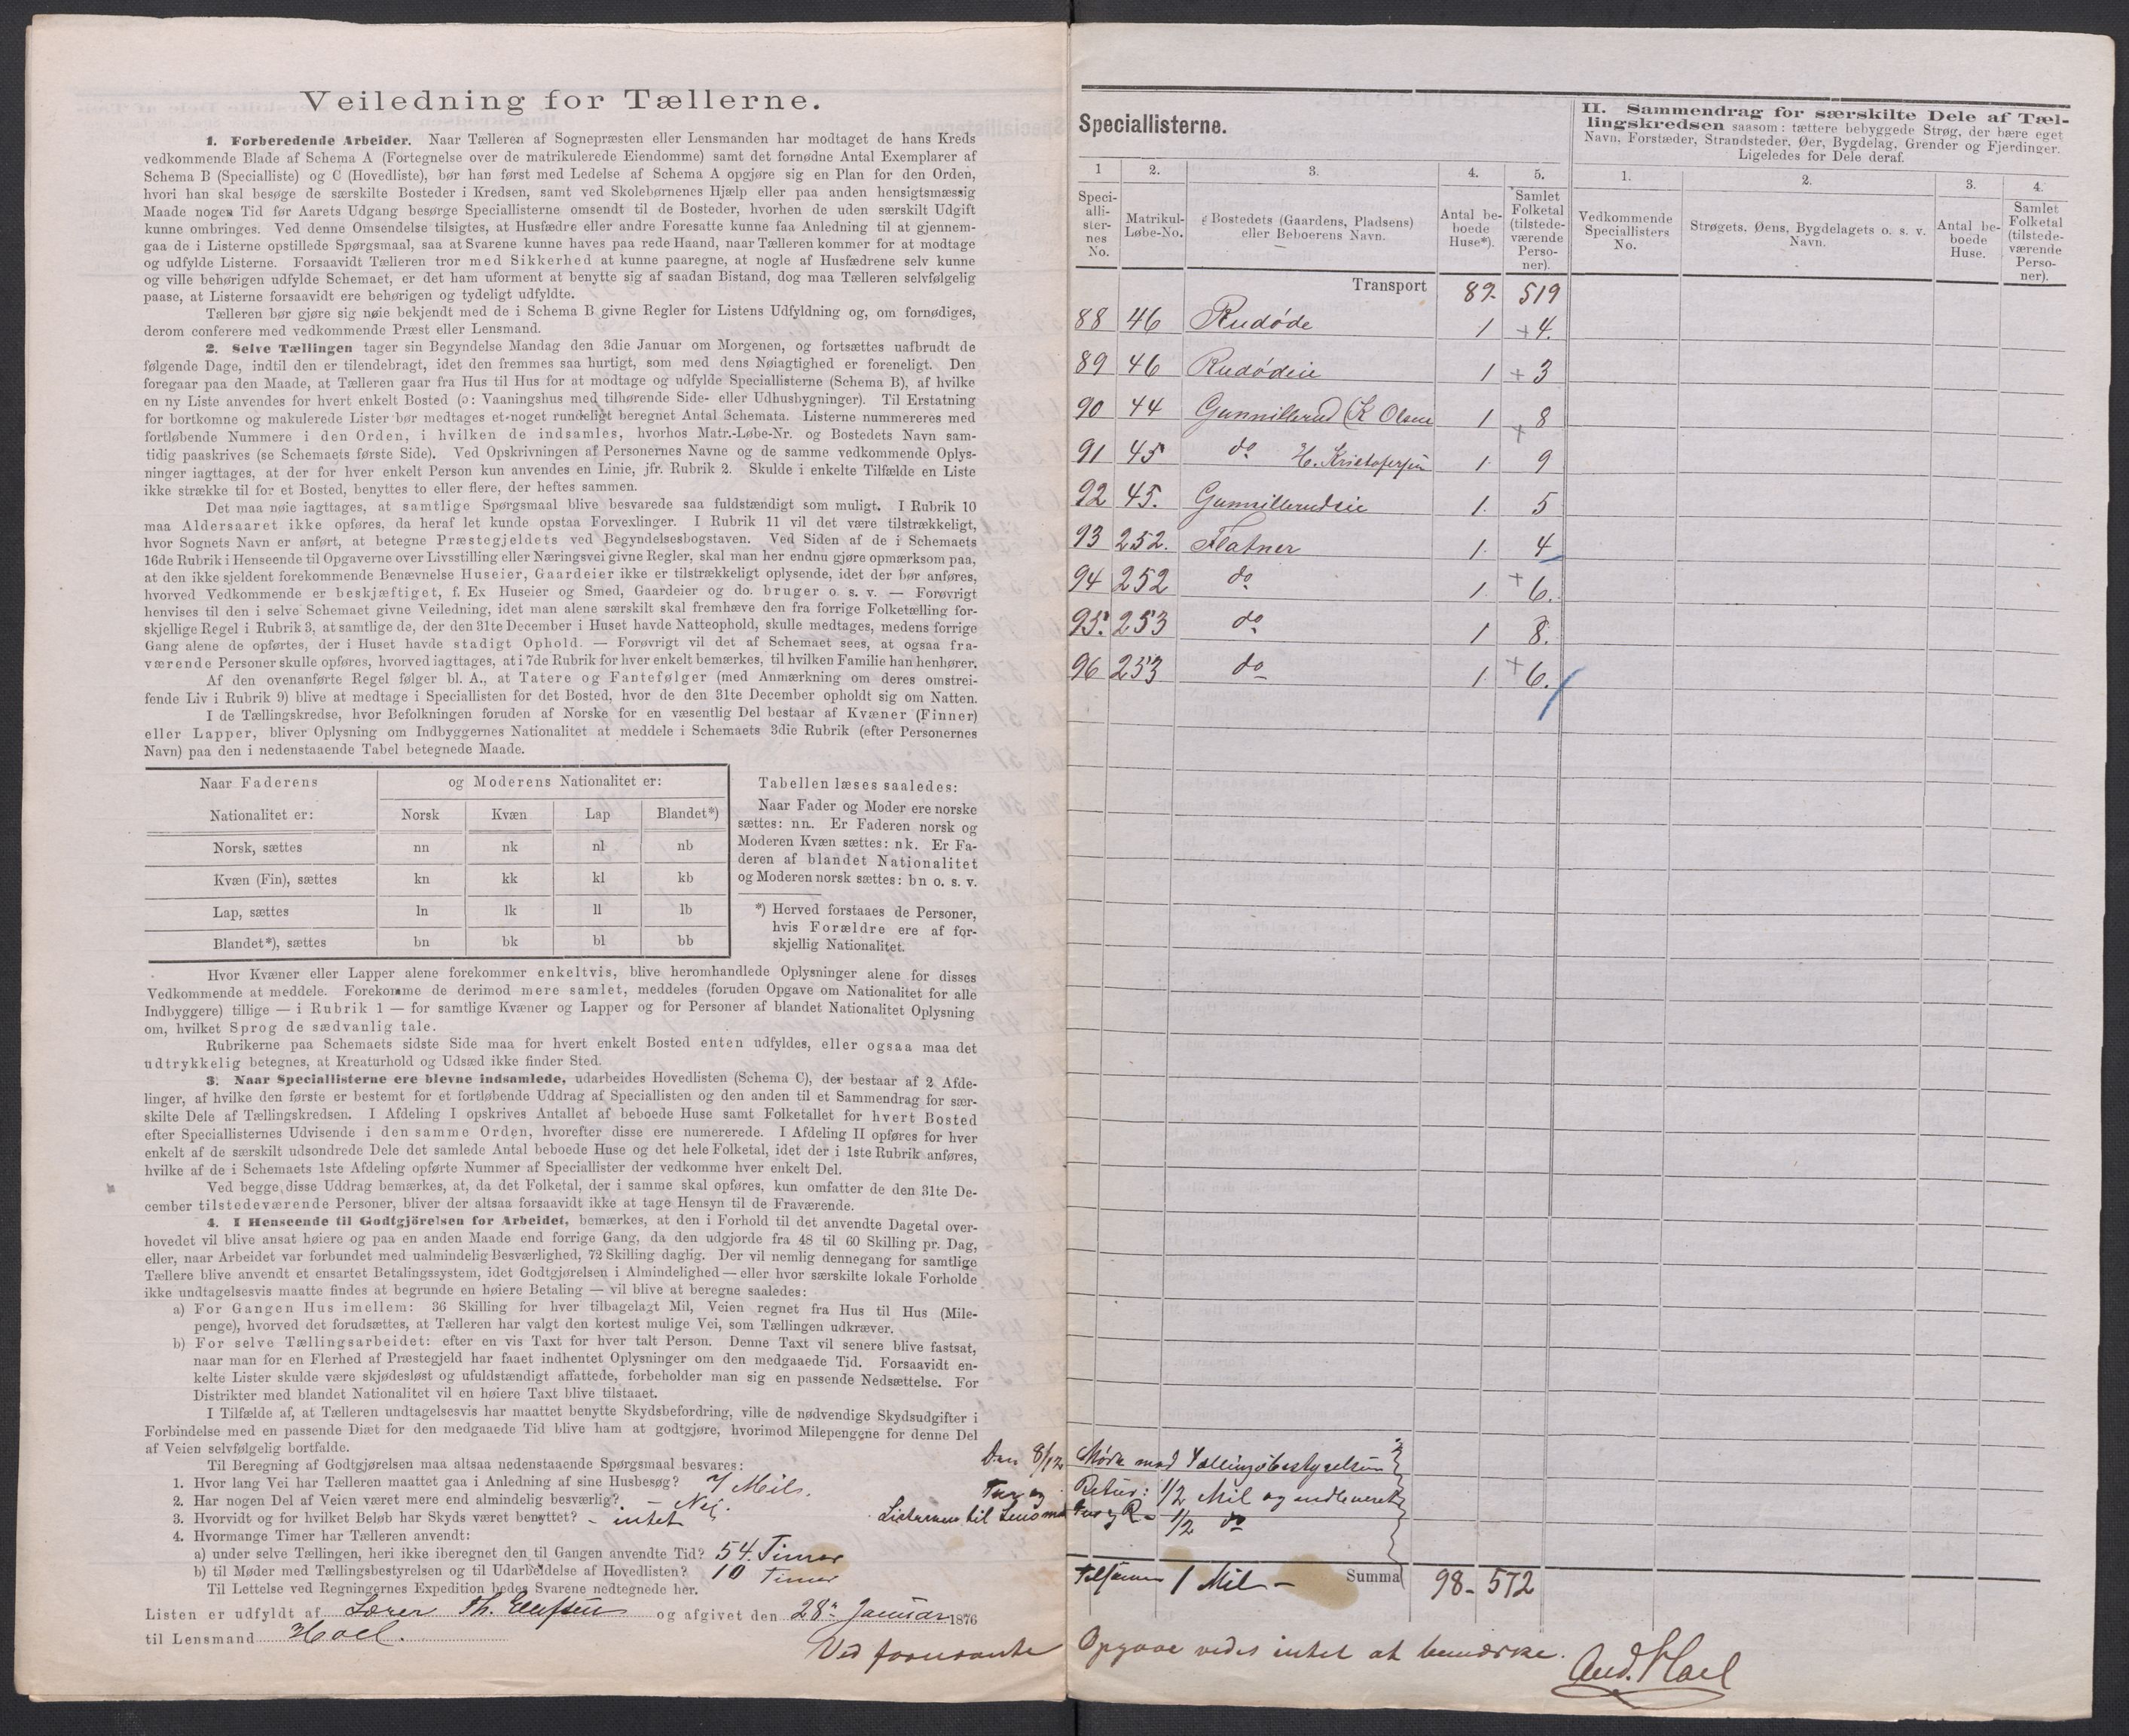 Veiledning for Tællerne.
1. Forberedende Arbeider. Naar Tælleren af Sognepræsten eller Lensmanden har modtaget de hans Kreds
vedkommende Blade af Schema A (Fortegnelse over de matrikulerede Eiendomme) samt det fornødne Antal Exemplarer af
Schema B (Specialliste) og C (Hovedliste), bør han først med Ledelse af Schema A opgjøre sig en Plan for den Orden,
hvori han skal besøge de særskilte Bosteder i Kredsen, samt ved Skolebørnenes Hjælp eller paa anden hensigtsmæssig
Maade nogen Tid før Aarets Udgang besørge Speciallisterne omsendt til de Bosteder, hvorhen de uden særskilt Udgift
kunne ombringes. Ved denne Omsendelse tilsigtes, at Husfædre eller andre Foresatte kunne faa Anledning til at gjennem-
gaa de i Listerne opstillede Spørgsmaal, saa at Svarene kunne haves paa rede Haand, naar Tælleren kommer for at modtage
og udfylde Listerne. Forsaavidt Tælleren tror med Sikkerhed at kunne paaregne, at nogle af Husfædrene selv kunne
og ville behørigen udfylde Schemaet, er det ham uforment at benytte sig af saadan Bistand, dog maa Tælleren selvfølgelig
paase, at Listerne forsaavidt ere behørigen og tydeligt udfyldte.
Tælleren bør gjøre sig nøie bekjendt med de i Schema B givne Regler for Listens Udfyldning og, om fornødiges,
derom conferere med vedkommende Præst eller Lensmand.
2. Selve Tællingen tager sin Begyndelse Mandag den 3die Januar om Morgenen, og fortsættes uafbrudt de
følgende Dage, indtil den er tilendebragt, idet den fremmes saa hurtigt, som med dens Nøiagtighed er foreneligt. Den
foregaar paa den Maade, at Tælleren gaar fra Hus til Hus for at modtage og udfylde Speciallisterne (Schema B), af hvilke
en ny Liste anvendes for hvert enkelt Bosted (ɔ: Vaaningshus med tilhørende Side- eller Udhusbygninger). Til Erstatning
for bortkomne og makulerede Lister bør medtages et noget rundeligt beregnet Antal Schemata. Listerne nummereres med
fortløbende Nummere i den Orden, i hvilken de indsamles, hvorhos Matr.-Løbe-Nr. og Bostedets Navn sam-
tidig paaskrives (se Schemaets første Side). Ved Opskrivningen af Personernes Navne og de samme vedkommende Oplys-
ninger iagttages, at der for hver enkelt Person kun anvendes en Linie, jfr. Rubrik 2. Skulde i enkelte Tilfælde en Liste
ikke strække til for et Bosted, benyttes to eller flere, der heftes sammen.
Det maa nøie iagttages, at samtlige Spørgsmaal blive besvarede saa fuldstændigt som muligt. I Rubrik 10
maa Aldersaaret ikke opføres, da heraf let kunde opstaa Forvexlinger. I Rubrik 11 vil det være tilstrækkeligt,
hvor Sognets Navn er anført, at betegne Præstegjeldets ved Begyndelsesbogstaven. Ved Siden af de i Schemaets
16de Rubrik i Henseende til Opgaverne over Livsstilling eller Næringsvei givne Regler, skal man her endnu gjøre opmærksom paa,
at den ikke sjeldent forekommende Benævnelse Huseier, Gaardeier ikke er tilstrækkeligt oplysende, idet der bør anføres,
hvorved Vedkommende er beskjæftiget, f. Ex Huseier og Smed, Gaardeier og do. bruger o. s. v. — Forøvrigt
henvises til den i selve Schemaet givne Veiledning, idet man alene særskilt skal fremhæve den fra forrige Folketælling for-
skjellige Regel i Rubrik 3, at samtlige de, der den 31te December i Huset havde Natteophold, skulle medtages, medens forrige
Gang alene de opførtes, der i Huset havde stadigt Ophold. — Forøvrigt vil det af Schemaet sees, at ogsaa fra-
værende Personer skulle opføres, hvorved iagttages, at i 7de Rubrik for hver enkelt bemærkes, til hvilken Familie han henhører.
Af den ovenanførte Regel følger bl. A., at Tatere og Fantefølger (med Anmærkning om deres omstrei-
fende Liv i Rubrik 9) blive at medtage i Speciallisten for det Bosted, hvor de den 31te December opholdt sig om Natten.
I de Tællingskredse, hvor Befolkningen foruden af Norske for en væsentlig Del bestaar af Kvæner (Finner)
eller Lapper, bliver Oplysning om Indbyggernes Nationalitet at meddele i Schemaets 3die Rubrik (efter Personernes
Navn) paa den i nedenstaaende Tabel betegnede Maade.
Naar Faderens Nationalitet er: og Moderens Nationalitet er:
Norsk Kvæn Lap Blandet*)
Norsk, sættes nn nk nl nb
Kvæn (Fin), sættes kn kk kl kb
Lap, sættes ln lk ll lb
Blandet*), sættes bn bk bl bb
Tabellen læses saaledes:
Naar Fader og Moder ere norske
sættes: nn. Er Faderen norsk og
Moderen Kvæn sættes: nk. Er Fa-
deren af blandet Nationalitet
og Moderen norsk sættes: bn o. s. v.
*) Herved forstaaes de Personer,
hvis Forældre ere af for-
skjellig Nationalitet.
Hvor Kvæner eller Lapper alene forekommer enkeltvis, blive heromhandlede Oplysninger alene for disses
Vedkommende at meddele. Forekomme de derimod mere samlet, meddeles (foruden Opgave om Nationalitet for alle
Indbyggere) tillige — i Rubrik 1 — for samtlige Kvæner og Lapper og for Personer af blandet Nationalitet Oplysning
om, hvilket Sprog de sædvanlig tale.
Rubrikerne paa Schemaets sidste Side maa for hvert enkelt Bosted enten udfyldes, eller ogsaa maa det
udtrykkelig betegnes, at Kreaturhold og Udsæd ikke finder Sted.
3. Naar Speciallisterne ere blevne indsamlede, udarbeides Hovedlisten (Schema C), der bestaar af 2 Afde-
linger, af hvilke den første er bestemt for et fortløbende Uddrag af Speciallisten og den anden til et Sammendrag for sær-
skilte Dele af Tællingskredsen. I Afdeling I opskrives Antallet af beboede Huse samt Folketallet for hvert Bosted
efter Speciallisternes Udvisende i den samme Orden, hvorefter disse ere numererede. I Afdeling II opføres for hver
enkelt af de særskilt udsondrede Dele det samlede Antal beboede Huse og det hele Folketal, idet der i 1ste Rubrik anføres,
hvilke af de i Schemaets 1ste Afdeling opførte Nummer af Speciallister der vedkomme hver enkelt Del.
Ved begge disse Uddrag bemærkes, at, da det Folketal, der i samme skal opføres, kun omfatter de den 31te De-
cember tilstedeværende Personer, bliver der altsaa forsaavidt ikke at tage Hensyn til de Fraværende.
4. I Henseende til Godtgjörelsen for Arbeidet, bemærkes, at den i Forhold til det anvendte Dagetal over-
hovedet vil blive ansat høiere og paa en anden Maade end forrige Gang, da den udgjorde fra 48 til 60 Skilling pr. Dag,
eller, naar Arbeidet var forbundet med ualmindelig Besværlighed, 72 Skilling daglig. Der vil nemlig dennegang for samtlige
Tællere blive anvendt et ensartet Betalingssystem, idet Godtgjørelsen i Almindelighed — eller hvor særskilte lokale Forholde
ikke undtagelsesvis maatte findes at begrunde en høiere Betaling — vil blive at beregne saaledes:
a) For Gangen Hus imellem: 36 Skilling for hver tilbagelagt Mil, Veien regnet fra Hus til Hus (Mile-
penge), hvorved det forudsættes, at Tælleren har valgt den kortest mulige Vei, som Tællingen udkræver.
b) For selve Tællingsarbeidet: efter en vis Taxt for hver talt Person. Denne Taxt vil senere blive fastsat,
naar man for en Flerhed af Præstegjeld har faaet indhentet Oplysninger om den medgaaede Tid. Forsaavidt en-
kelte Lister skulde være skjødesløst og ufuldstændigt affattede, forbeholder man sig en passende Nedsættelse. For
Distrikter med blandet Nationalitet vil en høiere Taxt blive tilstaaet.
I Tilfælde af, at Tælleren undtagelsesvis har maattet benytte Skydsbefordring, ville de nødvendige Skydsudgifter i
Forbindelse med en passende Diæt for den medgaaede Tid blive ham at godtgjøre, hvorimod Milepengene for denne Del
af Veien selvfølgelig bortfalde.
Til Beregning af Godtgjørelsen maa altsaa nedenstaaende Spørgsmaal besvares:
1. Hvor lang Vei har Tælleren maattet gaa i Anledning af sine Husbesøg? 7 Mile.
2. Har nogen Del af Veien været mere end almindelig besværlig? — Nei.
3. Hvorvidt og for hvilket Beløb har Skyds været benyttet? - intet
4. Hvormange Timer har Tælleren anvendt:
a) under selve Tællingen, heri ikke iberegnet den til Gangen anvendte Tid? 54. Timer
b) til Møder med Tællingsbestyrelsen og til Udarbeidelse af Hovedlisten? 10 Timer
Til Lettelse ved Regningernes Expedition bedes Svarene nedtegnede her.
Listen er udfyldt af Lærer Th. og afgivet den 28de Januar 1876
til Lensmand Hoel.
Speciallisterne.
1 2. 3. 4. 5.
Speci-alli-ster-nes No. Matrikul-Løbe-No. Bostedets (Gaardens, Pladsen) eller Beboerens Navn. Antal be-boede Huse*). Samlet Folketal (tilstede-værende Perso-ner).
Transport 89. 519
88 46 Rudøde 1 + 4.
89 46 Rudødeie 1 + 3
90 44 Gunnillerud (K Olsen 1 8
91 45 do H. Kristofersen 1 + 9
92 45. Gunnillerudeie 1 5
93 252. Flatner 1 4
94 252 do 1 + 6.
95. 253 do 1 8.
96 253 do 1 + 6.
II. Sammendrag for særskilte Dele af Tæl-
lingskredsen saasom: tættere bebyggede Strøg, der bære eget
Navn, Forstæder, Strandsteder, Øer, Bygdelag, Grender og Fjerdinger.
Ligeledes for Dele deraf.
1. 2. 3. 4.
Vedkommende Speciallisters No. Strøgets, Øens, Bygdelagets o. s. v. Navn. Antal be-boede Huse. Samlet Folketal (tilstede-værende Perso-ner).
Den 8/12 Møde med Tællingsbestyrelsen
Tur og Retur: 1/2 Mil og indleveret
Listerne til Lensmd Tur og R - 1/2 do
Tilsammen 1 Mil - Summa 98 - 572
Ved foranstaaende Opgave vides intet at bemærke.
And. Hoel